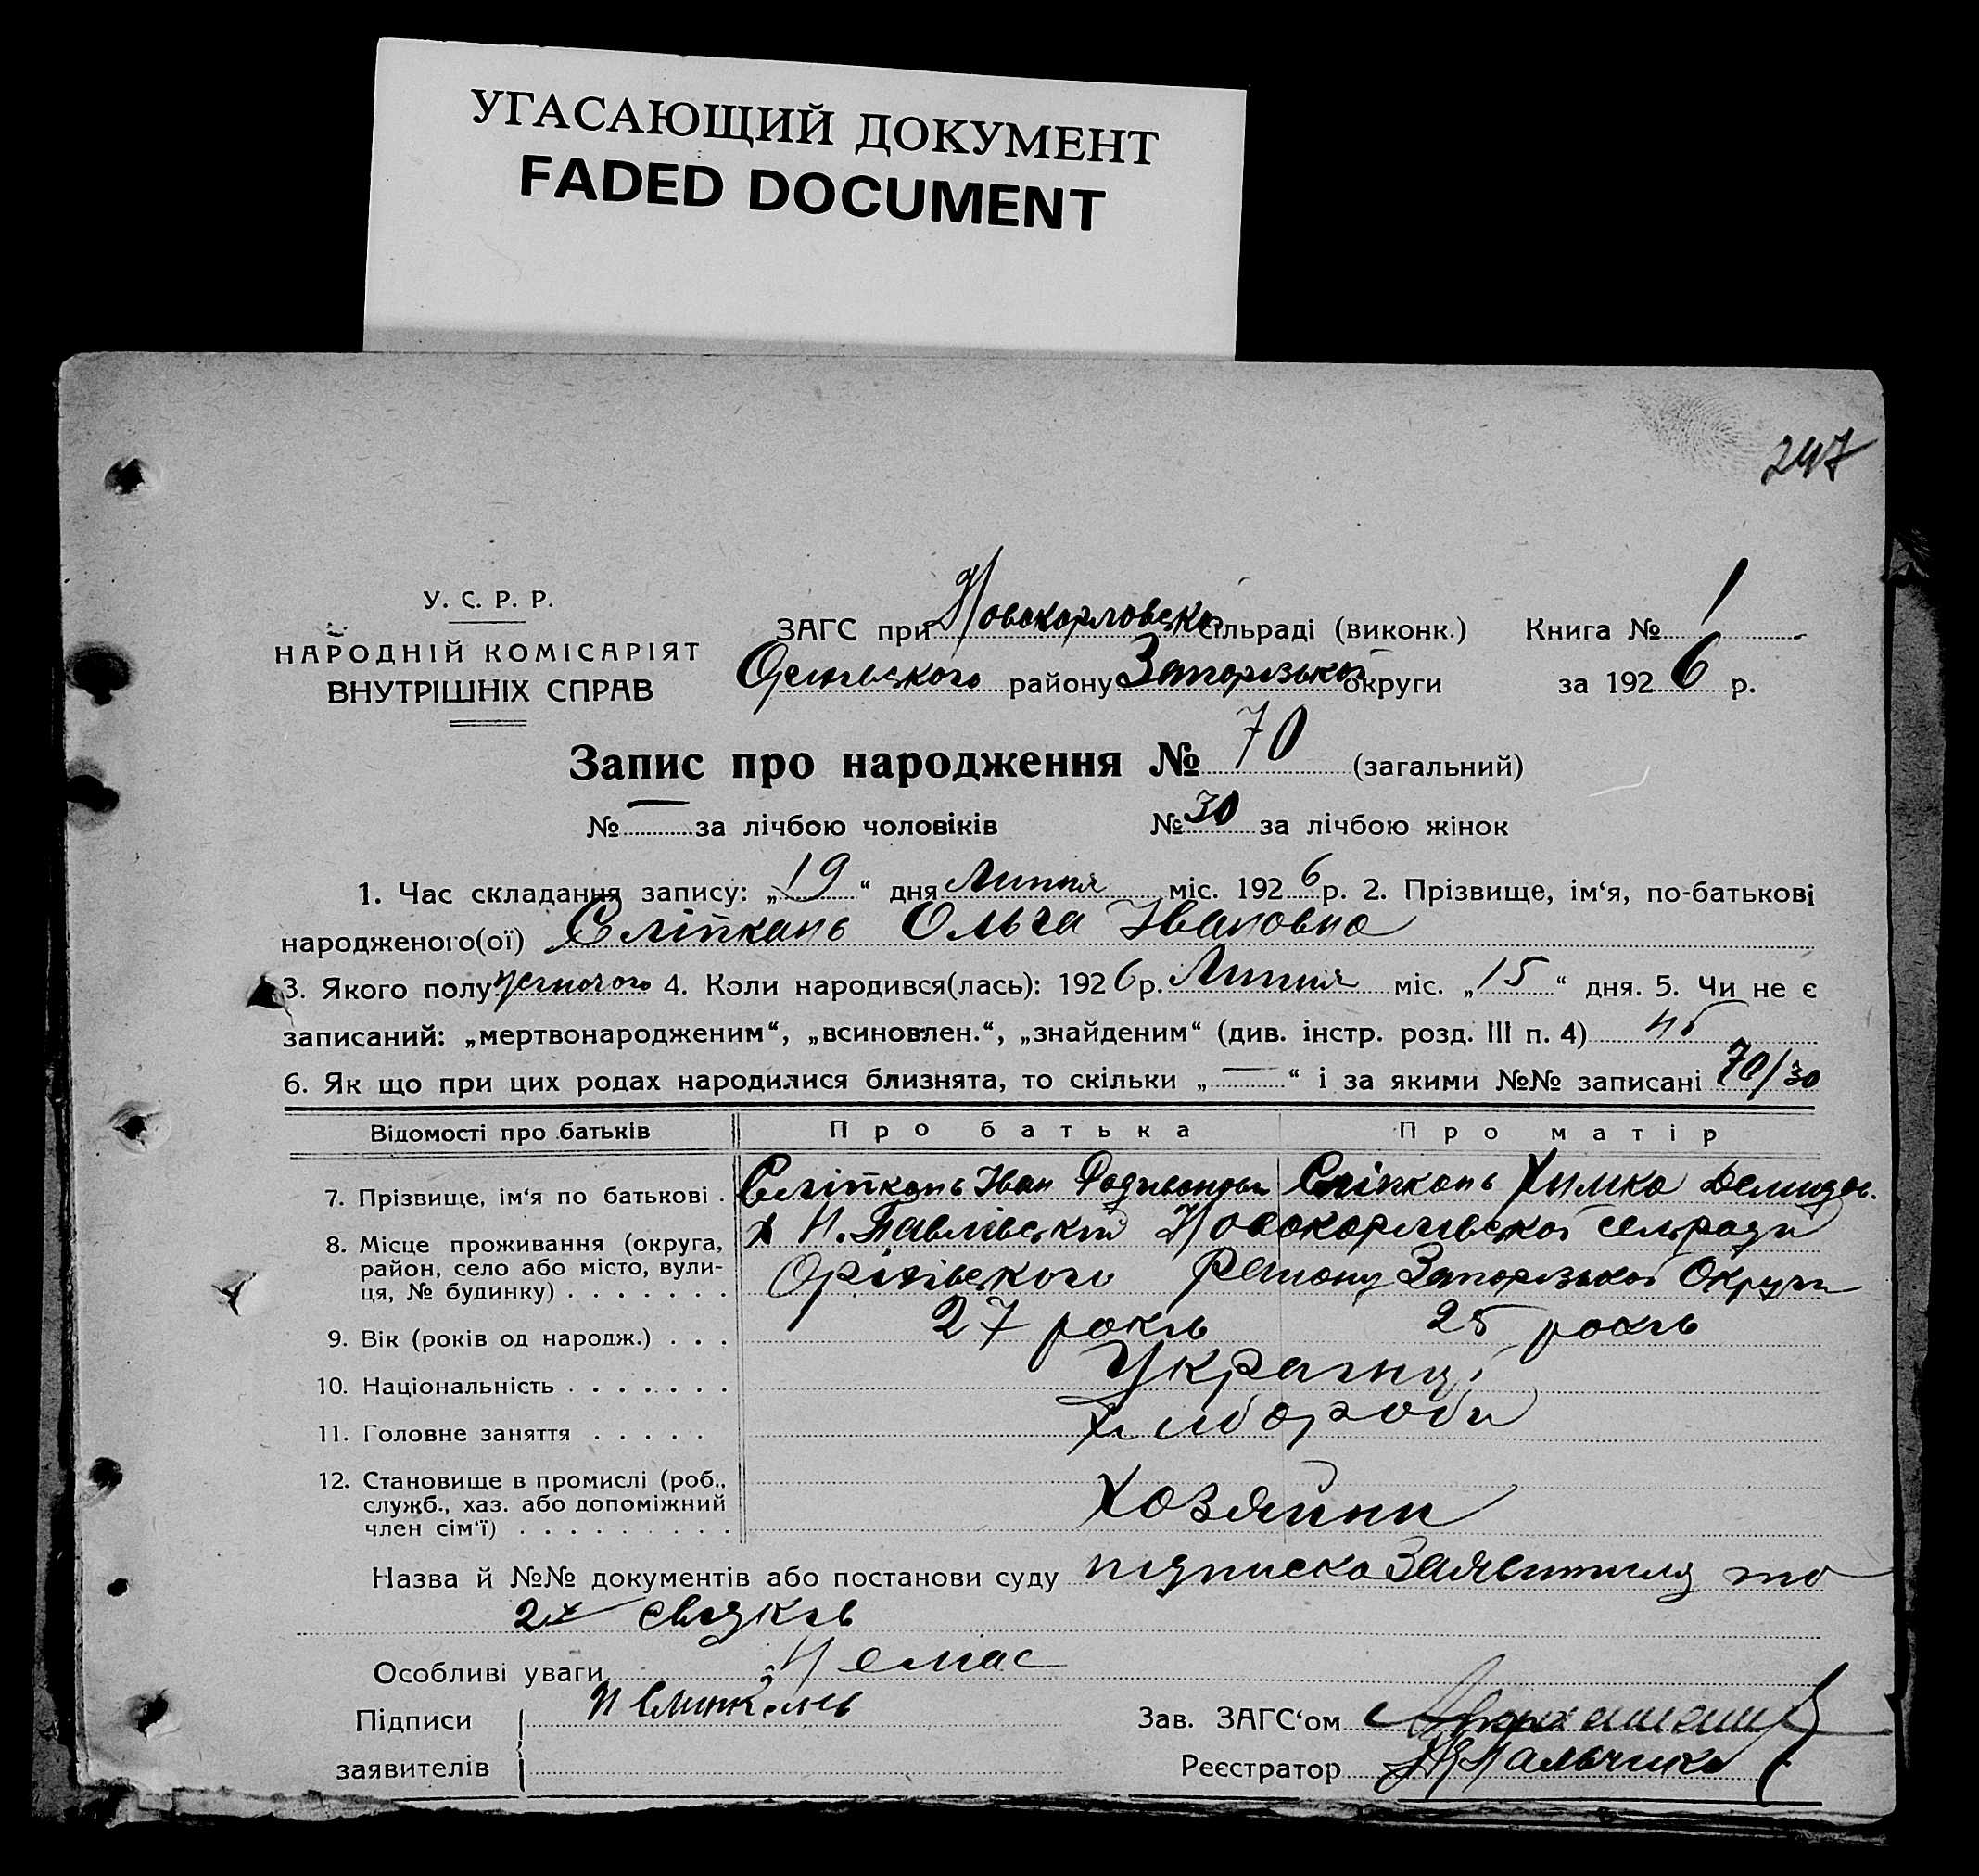 УГАСАЮЩИЙ ДОКУМЕНТ
FADED DOCUMENT
247
У. С. Р. Р.
НАРОДНІЙ КОМІСАРІЯТ
ВНУТРІШНІХ СПРАВ
ЗАГС при Новокарловско сільраді (виконк.) Книга № 1
району Запорізької округи за 1926 р.
Запис про народження № 70 (загальний)
№ — за лічбою чоловіків № 30 за лічбою жінок
1. Час складання запису: „19“ дня Липня міс. 1926 р. 2. Прізвище, ім‘я, по-батькові
народженого(ої) Сліпкань Ольга Івановна
3. Якого полу жіночого 4. Коли народився(лась): 1926 р. Липня міс. „15“ дня. 5. Чи не є
записаний: „мертвонародженим“, „всиновлен.“, „знайденим“ (див. інстр. розд. III п. 4) ні
6. Як що при цих родах народилися близнята, то скільки „—“ і за якими №№ записані 70/30
Відомості про батьків Про батька Про матір
7. Прізвище, ім‘я по батькові . Сліпкань Іван Родивонови Сліпкань Химка Демидов.
8. Місце проживання (округа, район, село або місто, вулиця, № будинку) . . . . . . . х Н. Павлівський Новокарлівської сельради
Оріхівського Району Запорізької Округи
9. Вік (років од народж.) . . . 27 років 25 років
10. Національність . . . . . . . Українці
11. Головне заняття . . . . . Хлібороби
12. Становище в промислі (роб., служб., хаз. або допоміжний член сім‘ї) . . . . . . . . . Хозяйни
Назва й №№ документів або постанови суду підписка Заявителя та
2х свідків
Особливі уваги Немає
Підписи И Слипкань Зав. ЗАГС‘ом
заявителів Реєстратор Пальчико